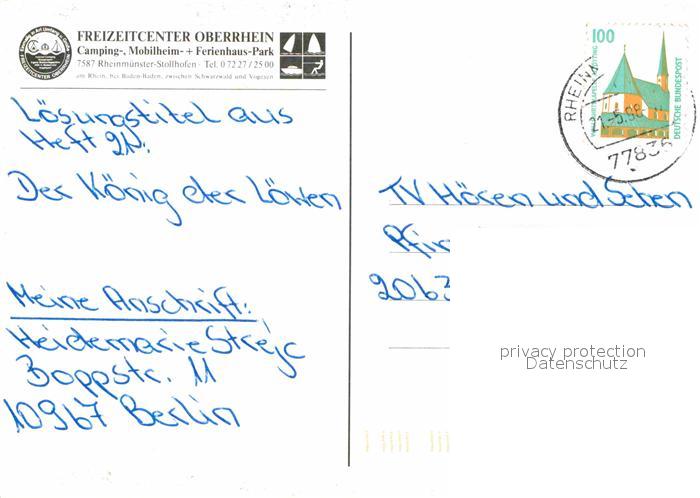 FREIZEITCENTER OBERRHEIN
Camping-, Mobilheim- + Ferienhaus-Park
7587 Rheinmünster-Stollhofen · Tel. 0 72 27 / 25 00
am Rhein, bei Baden-Baden, zwischen Schwarzwald und Vogesen
Lösungstitel aus
Heft 21:
Der König der Löwen
Meine Anschrift:
Heidemarie Strejc
Boppstr. 11
10967 Berlin
100
DEUTSCHE BUNDESPOST
RHEINM
21.-5.98
77836
TV Hören und Sehen
Pfin
2063
privacy protection
Datenschutz